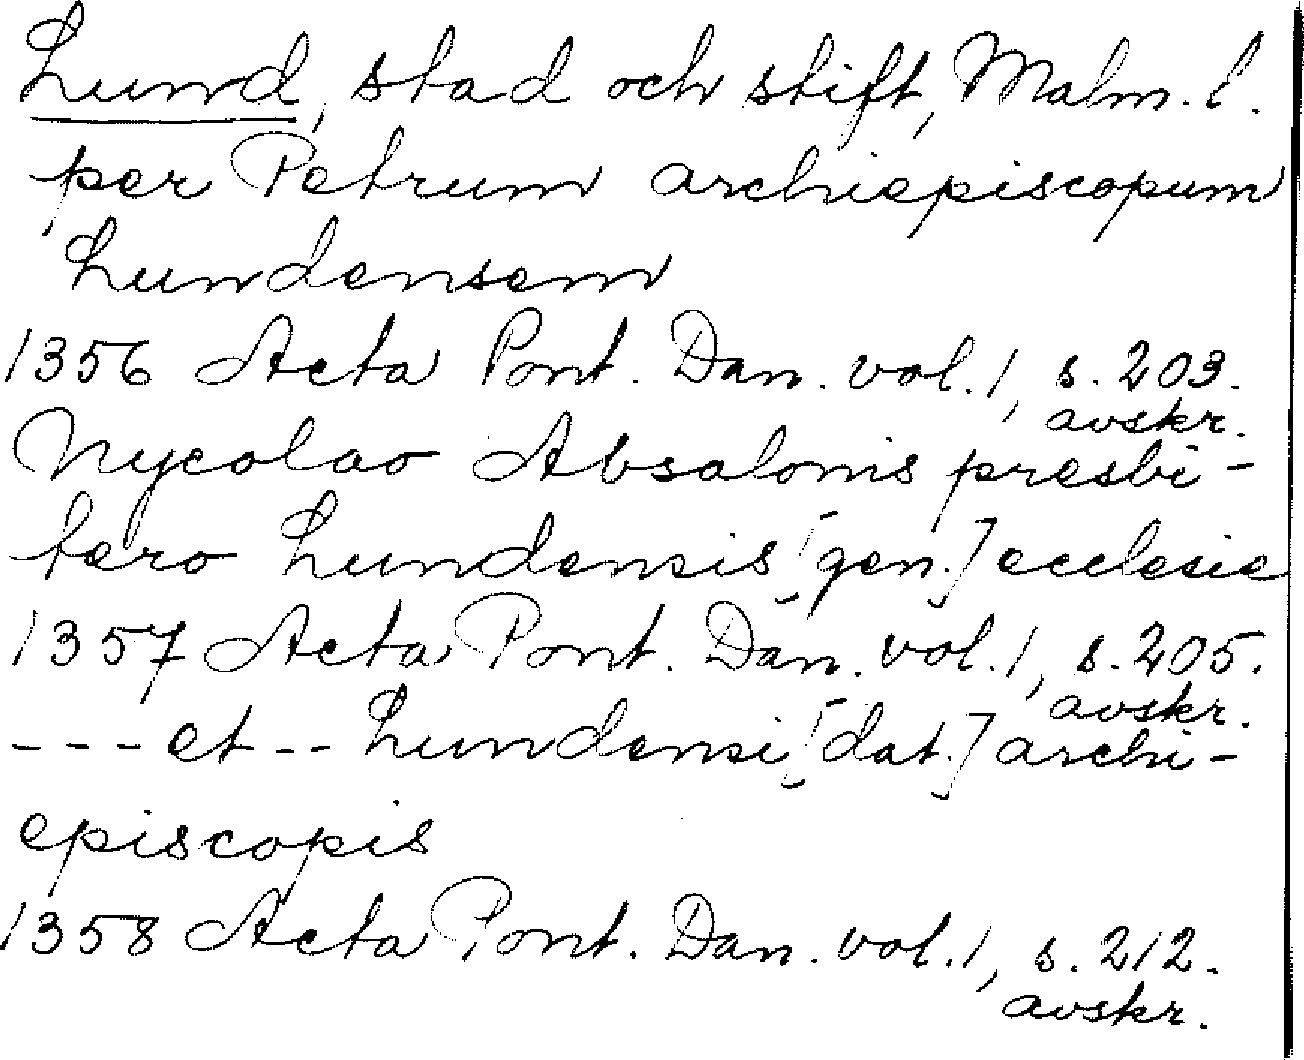 Lund, stad och stift, Malm. l.
per Petrum archiepiscopum
Lundensem
1356 Acta Pont. Dan. vol. 1, s. 203.
avskr.
Nycolao Absalonis presbi-
tero Lundensis [gen.] ecclesie
1357 Acta Pont. Dan. vol. 1, s. 205.
avskr.
--- et -- Lundensi [dat.] archi-
episcopis
1358 Acta Pont. Dan. vol. 1, s. 212.
avskr.